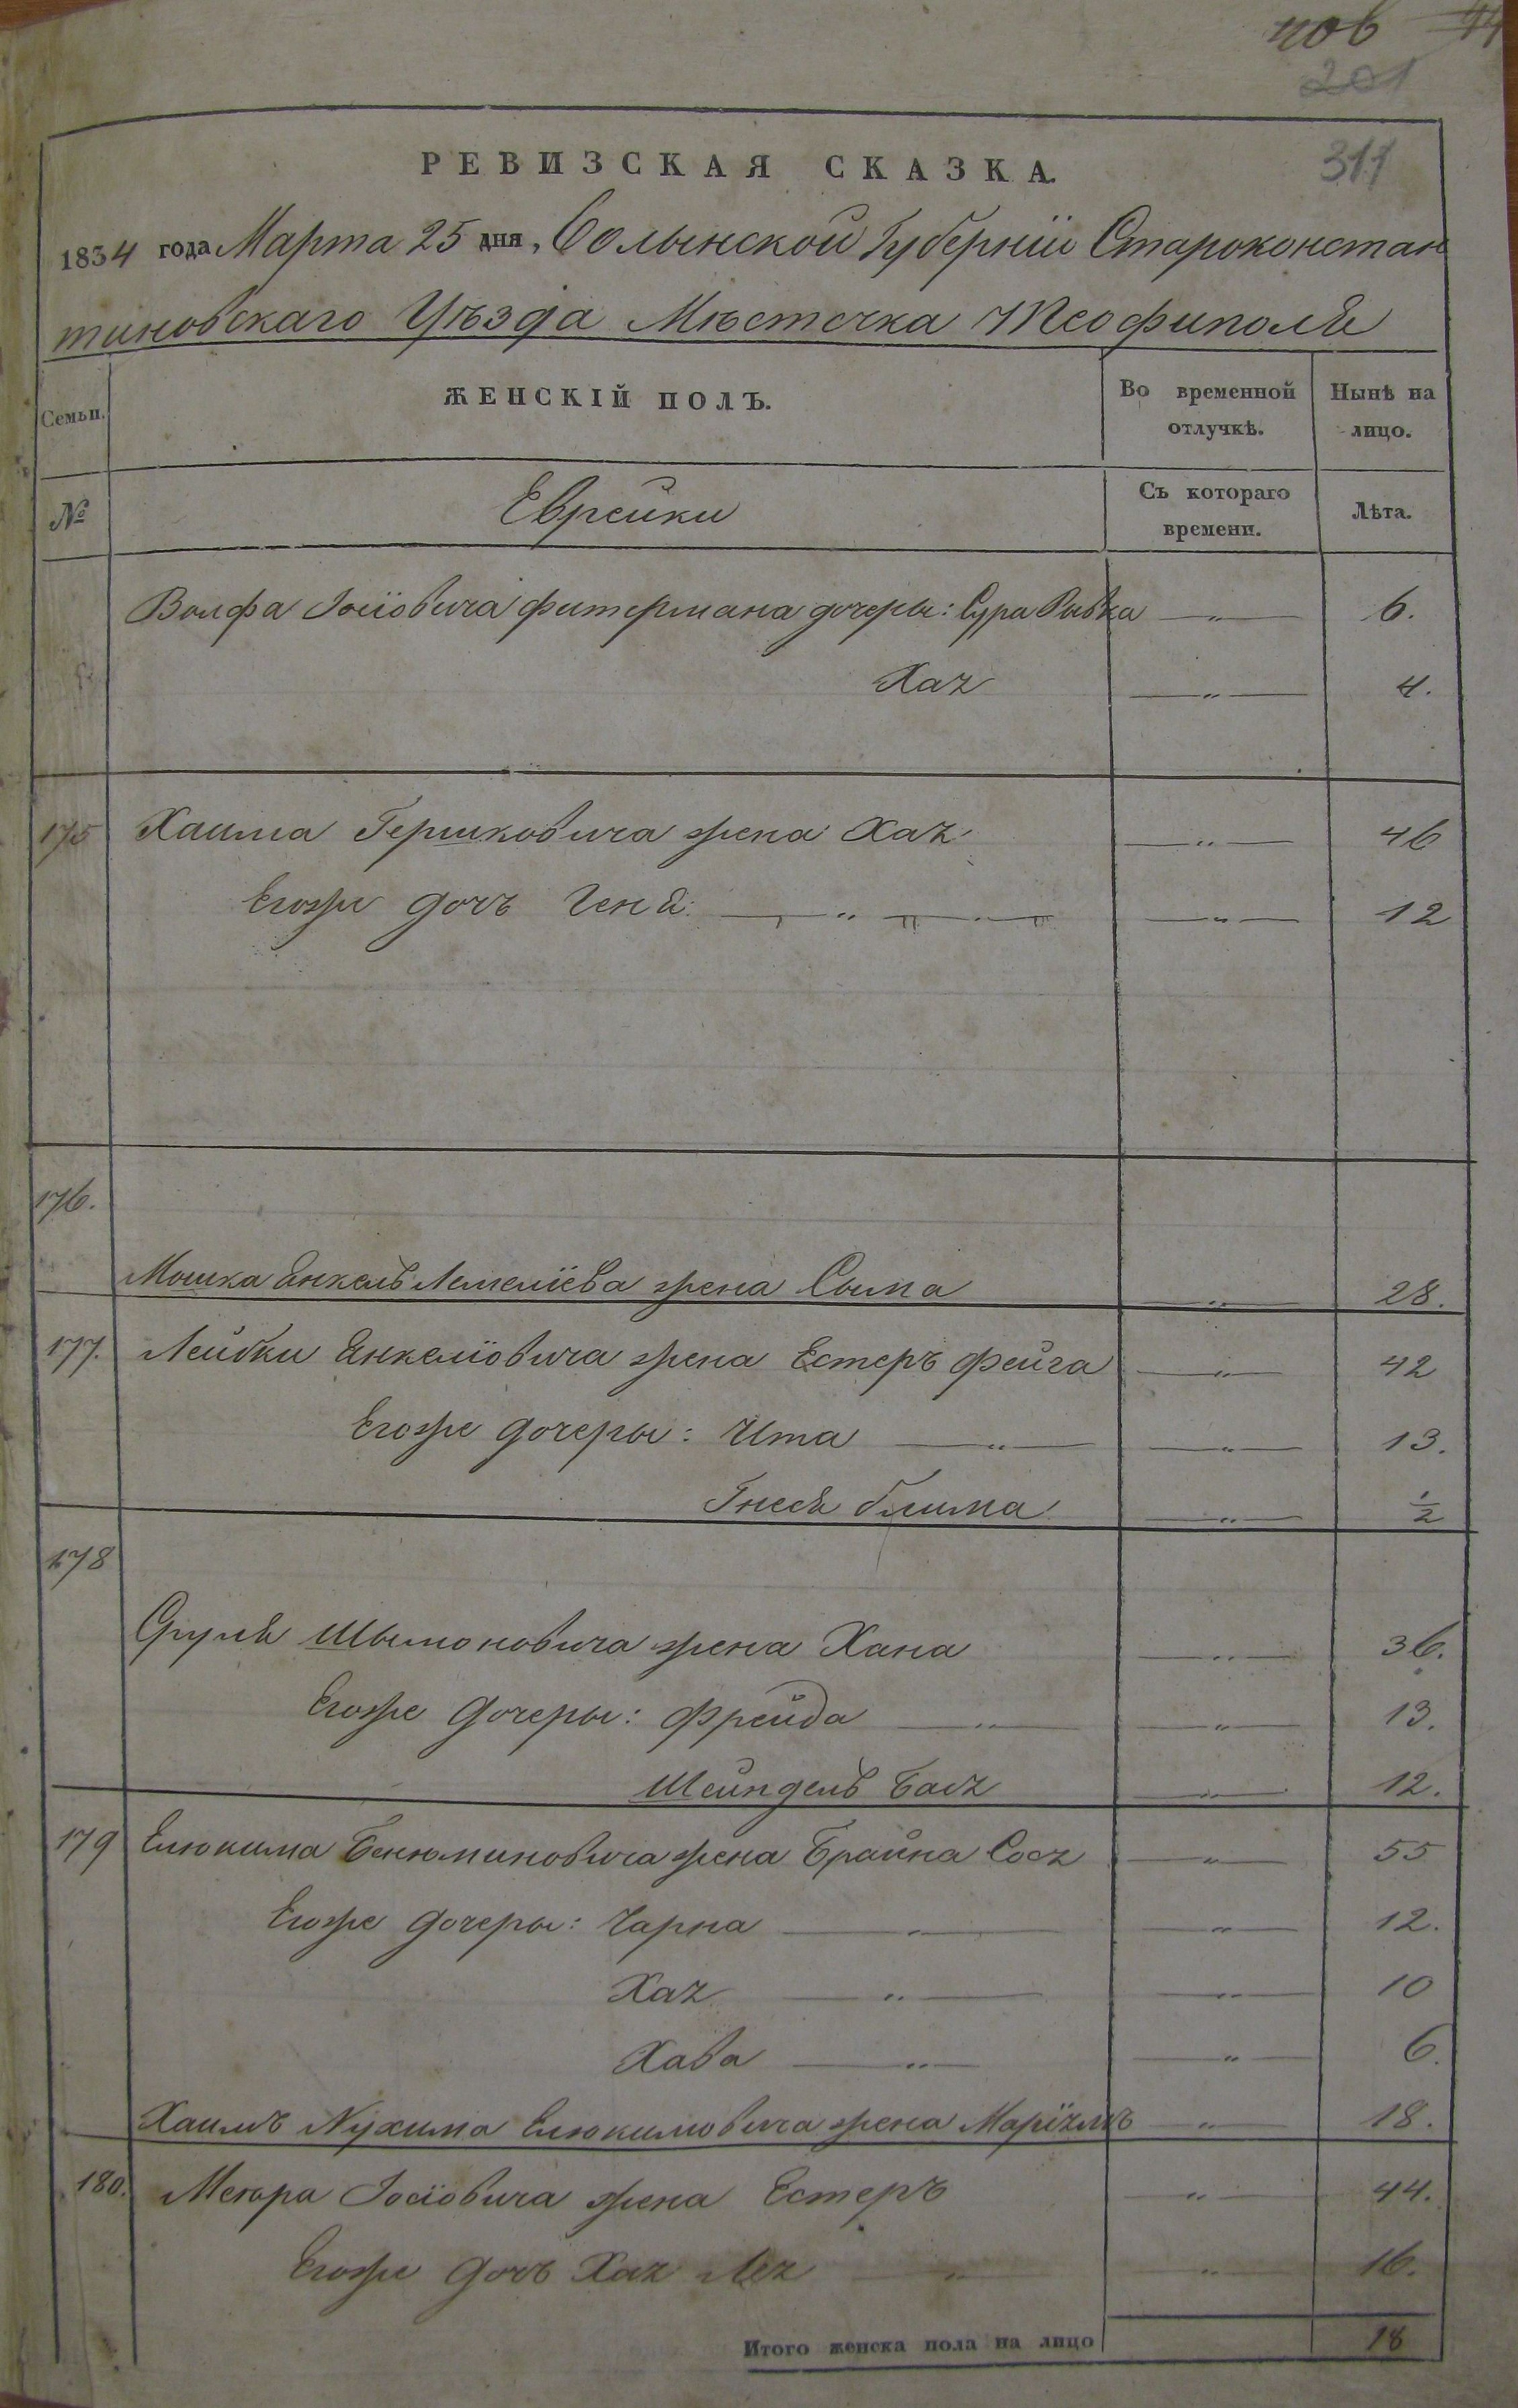 406
201
311
РЕВИЗСКАЯ СКАЗКА.
1834 года Марта 25 дня, Волынской Губерніи Староконстан
тиновскаго Уѣзда Мѣстечка Теофиполя
Семьи.
ЖЕНСКІЙ ПОЛЪ.
Во временной отлучкѣ.
Нынѣ на лицо.
№
Еврейки
Съ котораго времени.
Лѣта.
Волфа Іосіовича Фитермана дочеры: Сура Рывка — „ — 6.
Хая — „ — 4.
175 Хаима Гершковича жена Хая — „ — 46
Егоже дочь Геня: — „ — — „ — 12
176.
Мошка Янкель Лемеліева жена Сыма — „ — 28.
177. Лейбки Янкеліовича жена Естеръ Фейга — „ — 42
Егоже дочеры: Ита — „ — — „ — 13.
Гнеся Блима — „ — ½
178
Сруля Шымоновича жена Хана — „ — 36.
Егоже дочеры: Фрейда — „ — — „ — 13.
Шейндель Бася — „ — 12.
179 Елюкима Бенюминовича жена Брайна Сося — „ — 55
Егоже дочеры: Чарна — „ — — „ — 12.
Хая — „ — — „ — 10
Хава — „ — — „ — 6.
Хаимъ Нухима Елюкимовича жена Маріямъ — „ — 18.
180. Меюра Іосіовича жена Естеръ — „ — 44.
Егоже дочь Хая Лея — „ — — „ — 16.
Итого женска пола на лицо 18